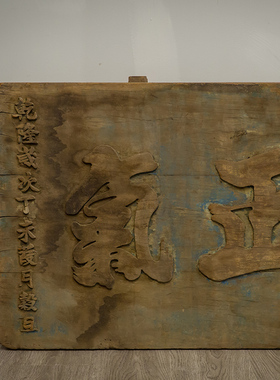 正氣
乾隆歲次丁亥月穀旦